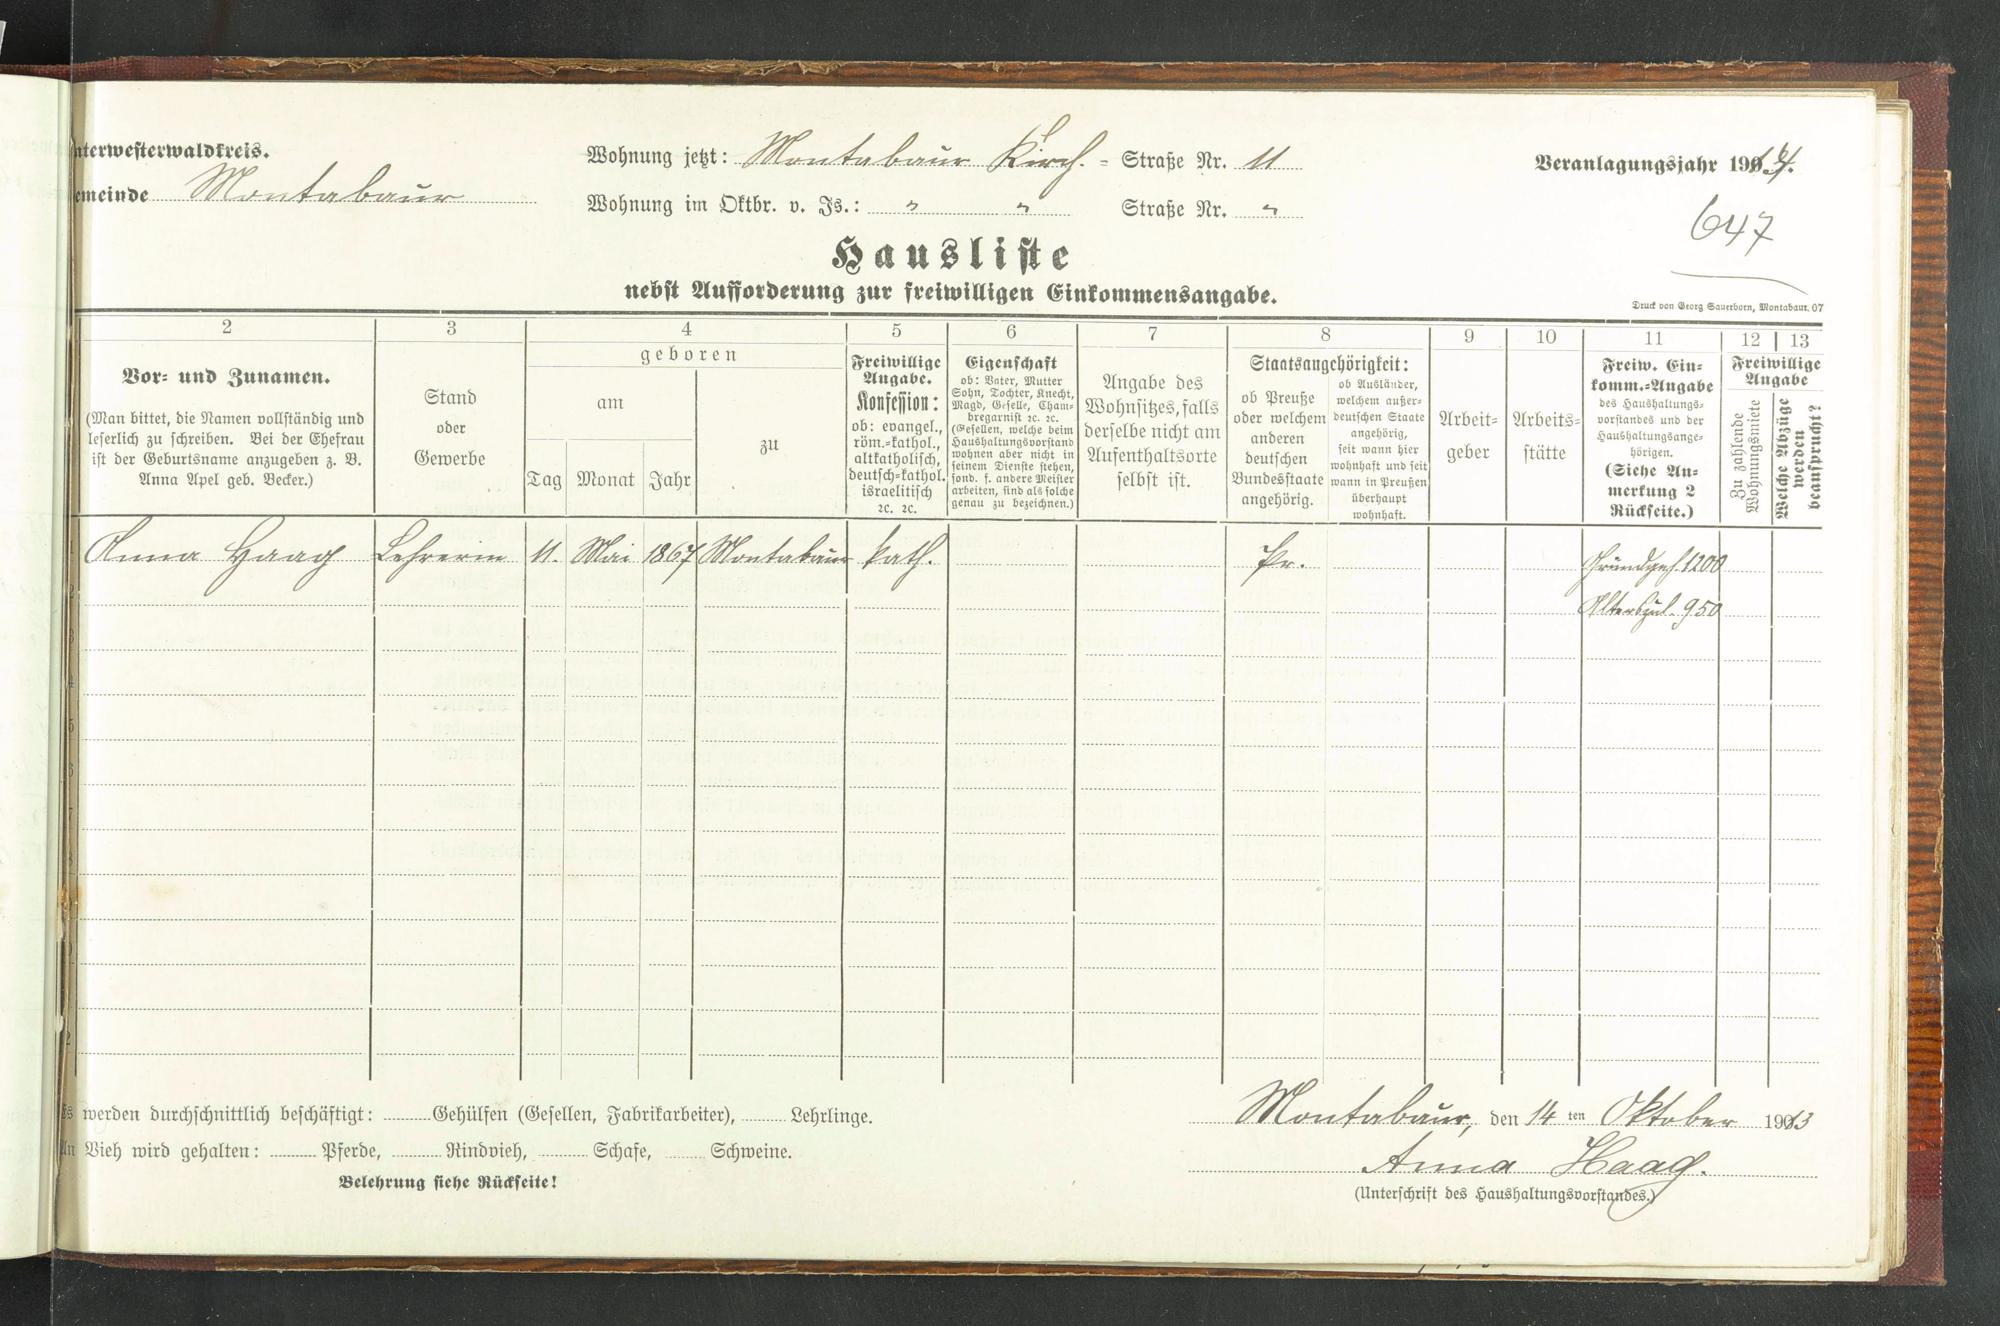 nterwesterwaldkreis.
emeinde Montabaur
Wohnung jetzt: Montabaur Kirch. = Straße Nr. 11
Wohnung im Oktbr. v. Js.: " " Straße Nr. "
Veranlagungsjahr 1914.
647
Hausliste
nebst Aufforderung zur freiwilligen Einkommensangabe.
Druck von Georg Sauerborn, Montabaur. 07
2
Vor= und Zunamen.
(Man bittet, die Namen vollständig und
leserlich zu schreiben. Bei der Ehefrau
ist der Geburtsname anzugeben z. B.
Anna Apel geb. Becker.)
3
Stand
oder
Gewerbe
4
geboren
am
Tag Monat Jahr
zu
5
Freiwillige
Angabe.
Konfession:
ob: evangel.,
röm.=kathol.,
altkatholisch,
deutsch=kathol.
israelitisch
2c. 2c.
6
Eigenschaft
ob: Vater, Mutter
Sohn, Tochter, Knecht,
Magd, Geselle, Cham=
bregarnist 2c. 2c.
(Gesellen, welche beim
Haushaltungsvorstand
wohnen aber nicht in
seinem Dienste stehen,
sond. f. andere Meister
arbeiten, sind als solche
genau zu bezeichnen.)
7
Angabe des
Wohnsitzes, falls
derselbe nicht am
Aufenthaltsorte
selbst ist.
8
Staatsangehörigkeit:
ob Preuße
oder welchem
anderen
deutschen
Bundesstaate
angehörig.
ob Ausländer,
welchem außer=
deutschen Staate
angehörig,
seit wann hier
wohnhaft und seit
wann in Preußen
überhaupt
wohnhaft.
9
Arbeit=
geber
10
Arbeits=
stätte
11
Freiw. Ein=
komm.=Angabe
des Haushaltungs=
vorstandes und der
Haushaltungsange=
hörigen.
(Siehe An=
merkung 2
Rückseite.)
12 13
Freiwillige
Angabe
Zu zahlende
Wohnungsmiete
Welche Abzüge
werden
beansprucht?
1 Anna Haag Lehrerin 11. Mai 1867 Montabaur kath. Pr. Grundgeh. 1200
2 Alterszul. 950
3
4
5
6
7
8
9
2
s werden durchschnittlich beschäftigt: Gehülfen (Gesellen, Fabrikarbeiter), Lehrlinge.
n Vieh wird gehalten: Pferde, Rindvieh, Schafe, Schweine.
Belehrung siehe Rückseite!
Montabaur, den 14ten Oktober 1913
Anna Haag.
(Unterschrift des Haushaltungsvorstandes.)